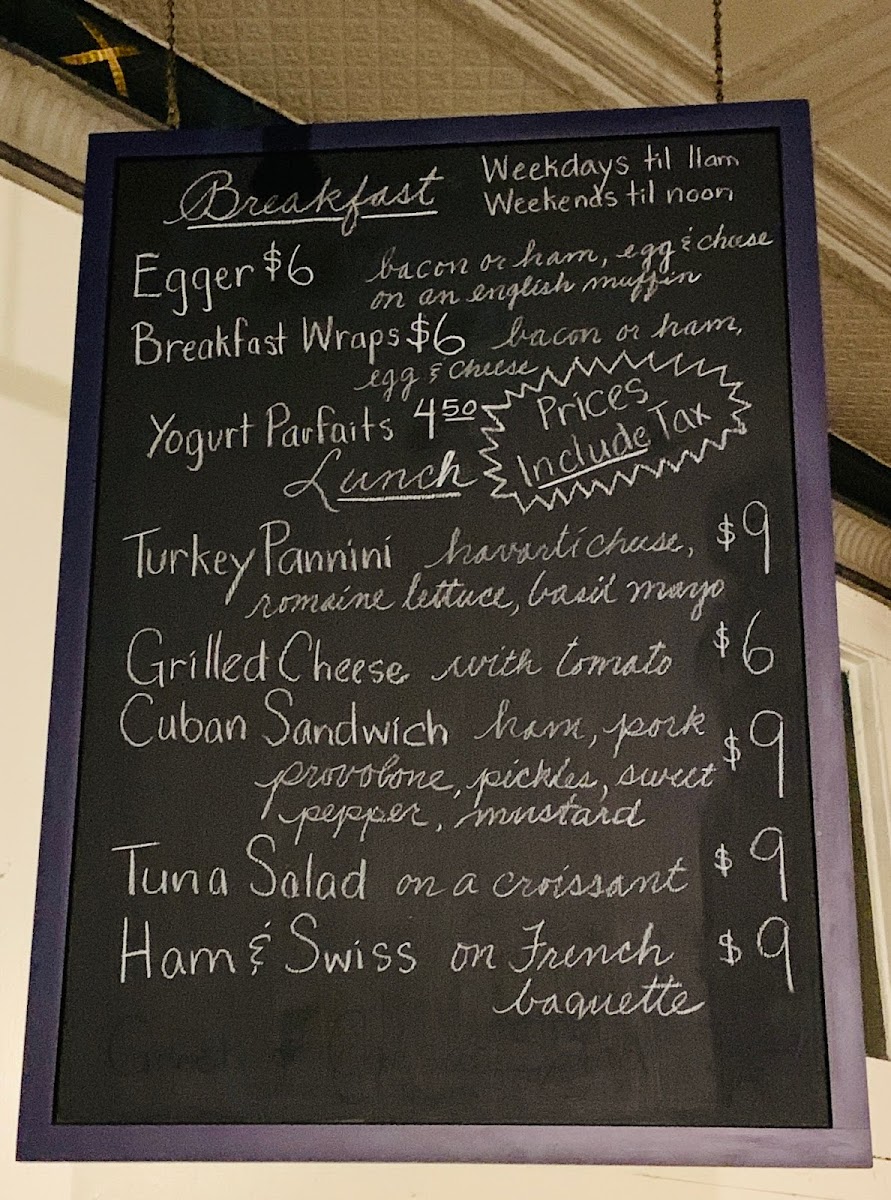 Breakfast Weekdays til 11am
Weekends til noon
Egger $6 bacon or ham, egg & cheese
on an english muffin
Breakfast Wraps $6 bacon or ham,
egg & cheese
Yogurt Parfaits 4.50
Prices
Include Tax
Lunch
Turkey Pannini havarti cheese, $9
romaine lettuce, basil mayo
Grilled Cheese with tomato $6
Cuban Sandwich ham, pork $9
provolone, pickles, sweet
pepper, mustard
Tuna Salad on a croissant $9
Ham & Swiss on French $9
baguette